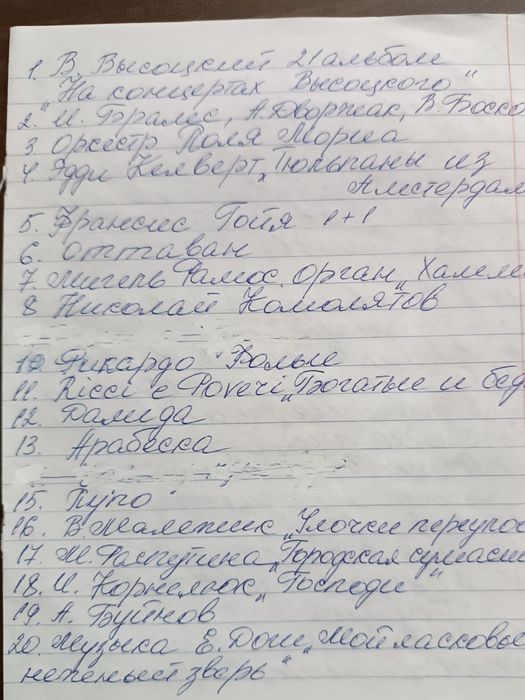 1. В. Высоцкий 21 альбом
"На концертах Высоцкого"
2. И. Гралес, А. Дворжак, В. Боско
3 Оркестр Поля Мориа
4. Эдди Келверт „Тюльпаны из
Амстердам
5. Франсис Гойя 1+1
6. Оттаван
7. Мигель Рамос. Орган „Хамм
8 Николай Комолятов
10 Рикардо Фолье
11. Ricci e Poveri „Богатые и бед
12. Далида
13. Арабеска
15. Пупо
16. В. Малежик „Улочки переулос
17. М. Распутина „Городская сумасш
18. И. Корнелюк „Господи"
19. А. Буйнов
20. Музыка Е. Дош „Мой ласковы
неженый зверь"